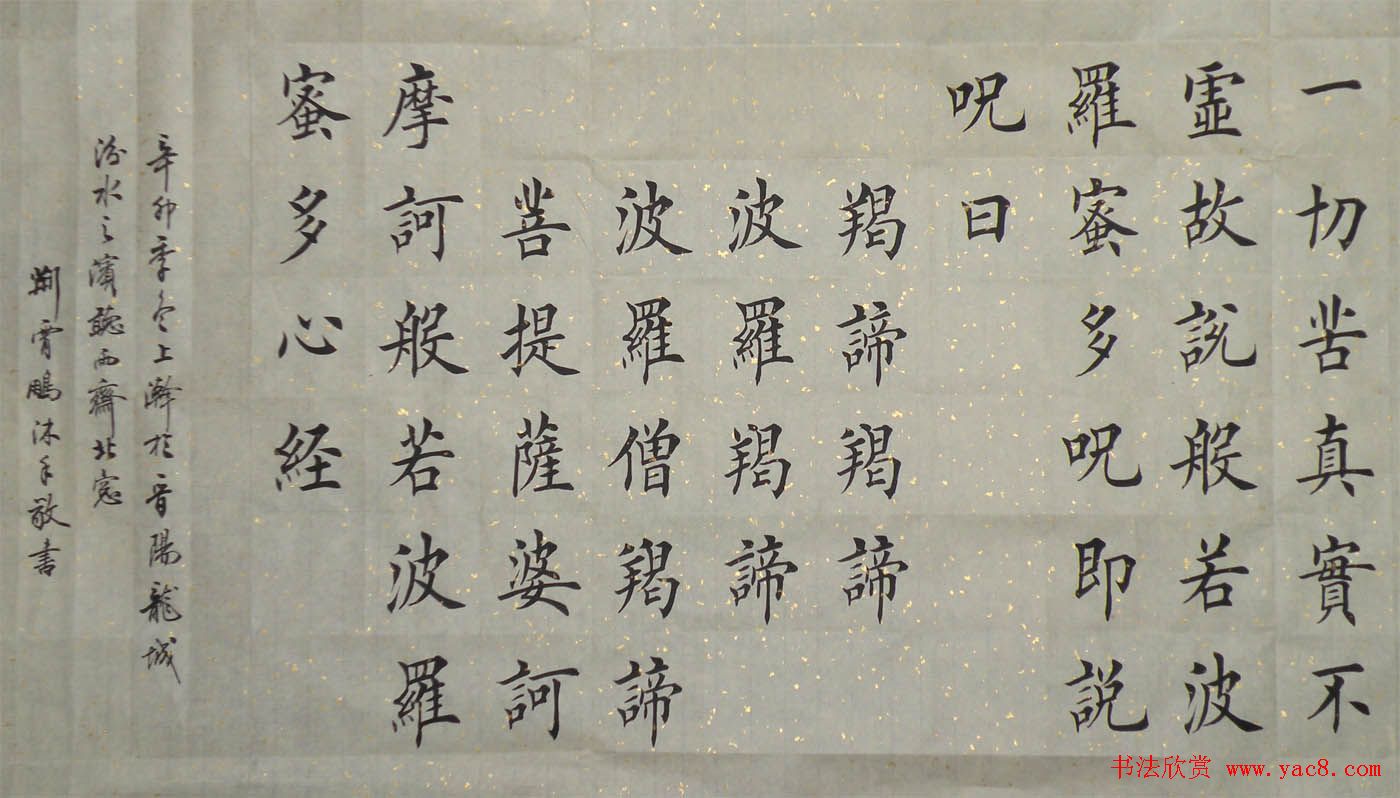 一切苦真實不
虛故說般若波
羅蜜多呪即説
呪曰
羯諦羯諦
波羅羯諦
波羅僧羯諦
菩提薩婆訶
摩訶般若波羅
蜜多心経
辛卯季冬上澣於晋陽龍城
汾水之濱聽雨齋北窓
荊霄鵬沐手敬書
书法欣赏 www.yac8.com